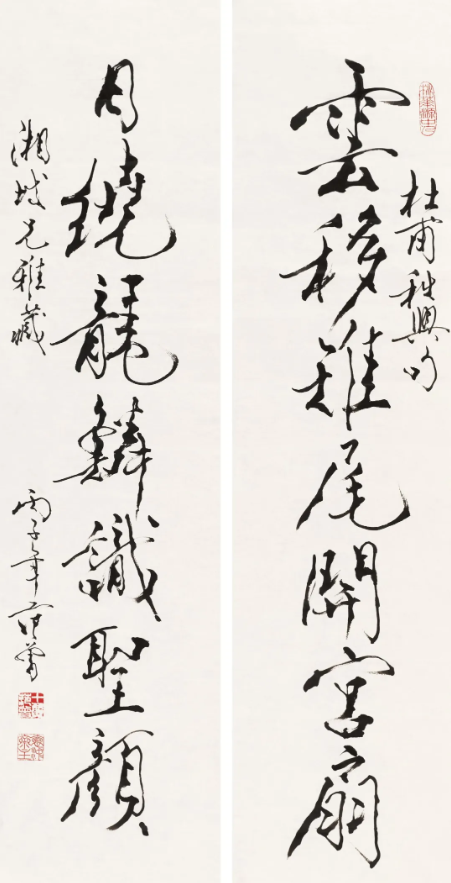 杜甫秋興句
雲移雉尾開宮扇
日繞龍鱗識聖顏
湘城兄雅藏
丙子年范曾